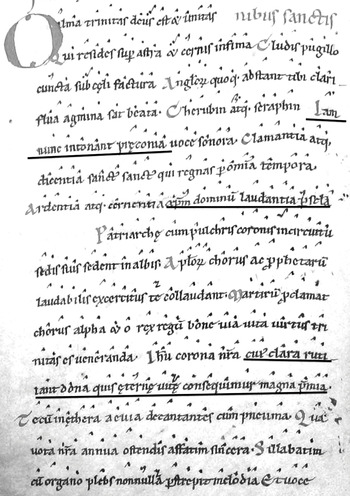 O alma trinitas deus est & unitas nibus sanctis
Qui resides sup astra & cernis infima Cludis pugillo
cuncta sub cęli factura Anglorꝝ quoq; abstant tibi clari
flua agmina sat beata. Cherubin atq; seraphin Iam
nunc intonant pręconia voce sonora. Clamantia atq;
dicentia sanc̄t sanc̄t qui regnas p omīa tempora.
Ardentia atq; cernentia dominū laudantia p sęla
Patriarchę cum pulchris coronis incircuitu
sedis suis sedent in albis. Aplorꝝ chorus ac prophetarū
laudabilis exercitus te collaudant. Martirū p clamat
chorus alpha & o rex regū bone uia uita uirtus tri
nitas es ueneranda. Ihū corona nr̄a cuī clara ruti
lant dona quis ęternę uitę consequimur magna p̄mia.
Tecū in ęthera aeuia decantantes cum pneuma. Qua
uota nr̄a annua ostendis affatim sincera. Sillabatim
cū organo plebs non nulla pstrepit melodia. Et uoce